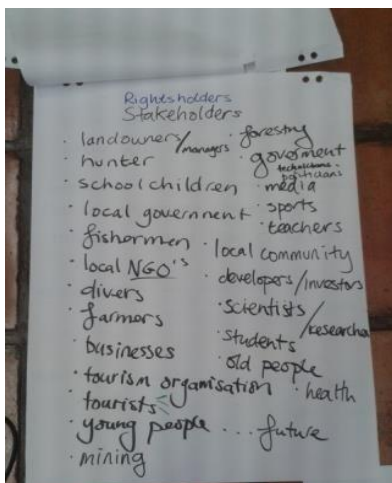 Rightsholders
Stakeholders
· landowners/managers
· hunter
· schoolchildren
· local government
· fishermen
· local NGO's
· divers
· farmers
· businesses
· tourism organisation
· tourists
· young people ... future
· mining
· forestry
· goverment
technicians -
politicians
· media
· sports
· teachers
· local community
· developers/investors
· scientists
/researcher
· students
· old people
· health